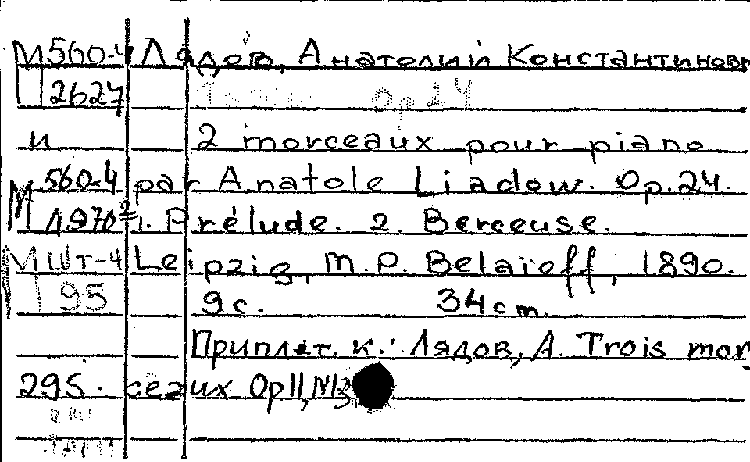 М560-4 Лядов, Анатолий Константинов
2627 Op 24
и 2 morceaux pour piano
М 560-4 par Anatole Liadow. Op. 24.
1970 1. Prélude. 2. Berceuse.
МШт-4 Leipzig, M. P. Belaïeff, 1890.
95 9 с. 34 cm.
Приплет. к: Лядов, А. Trois mor
295. ceaux Op 11, №3